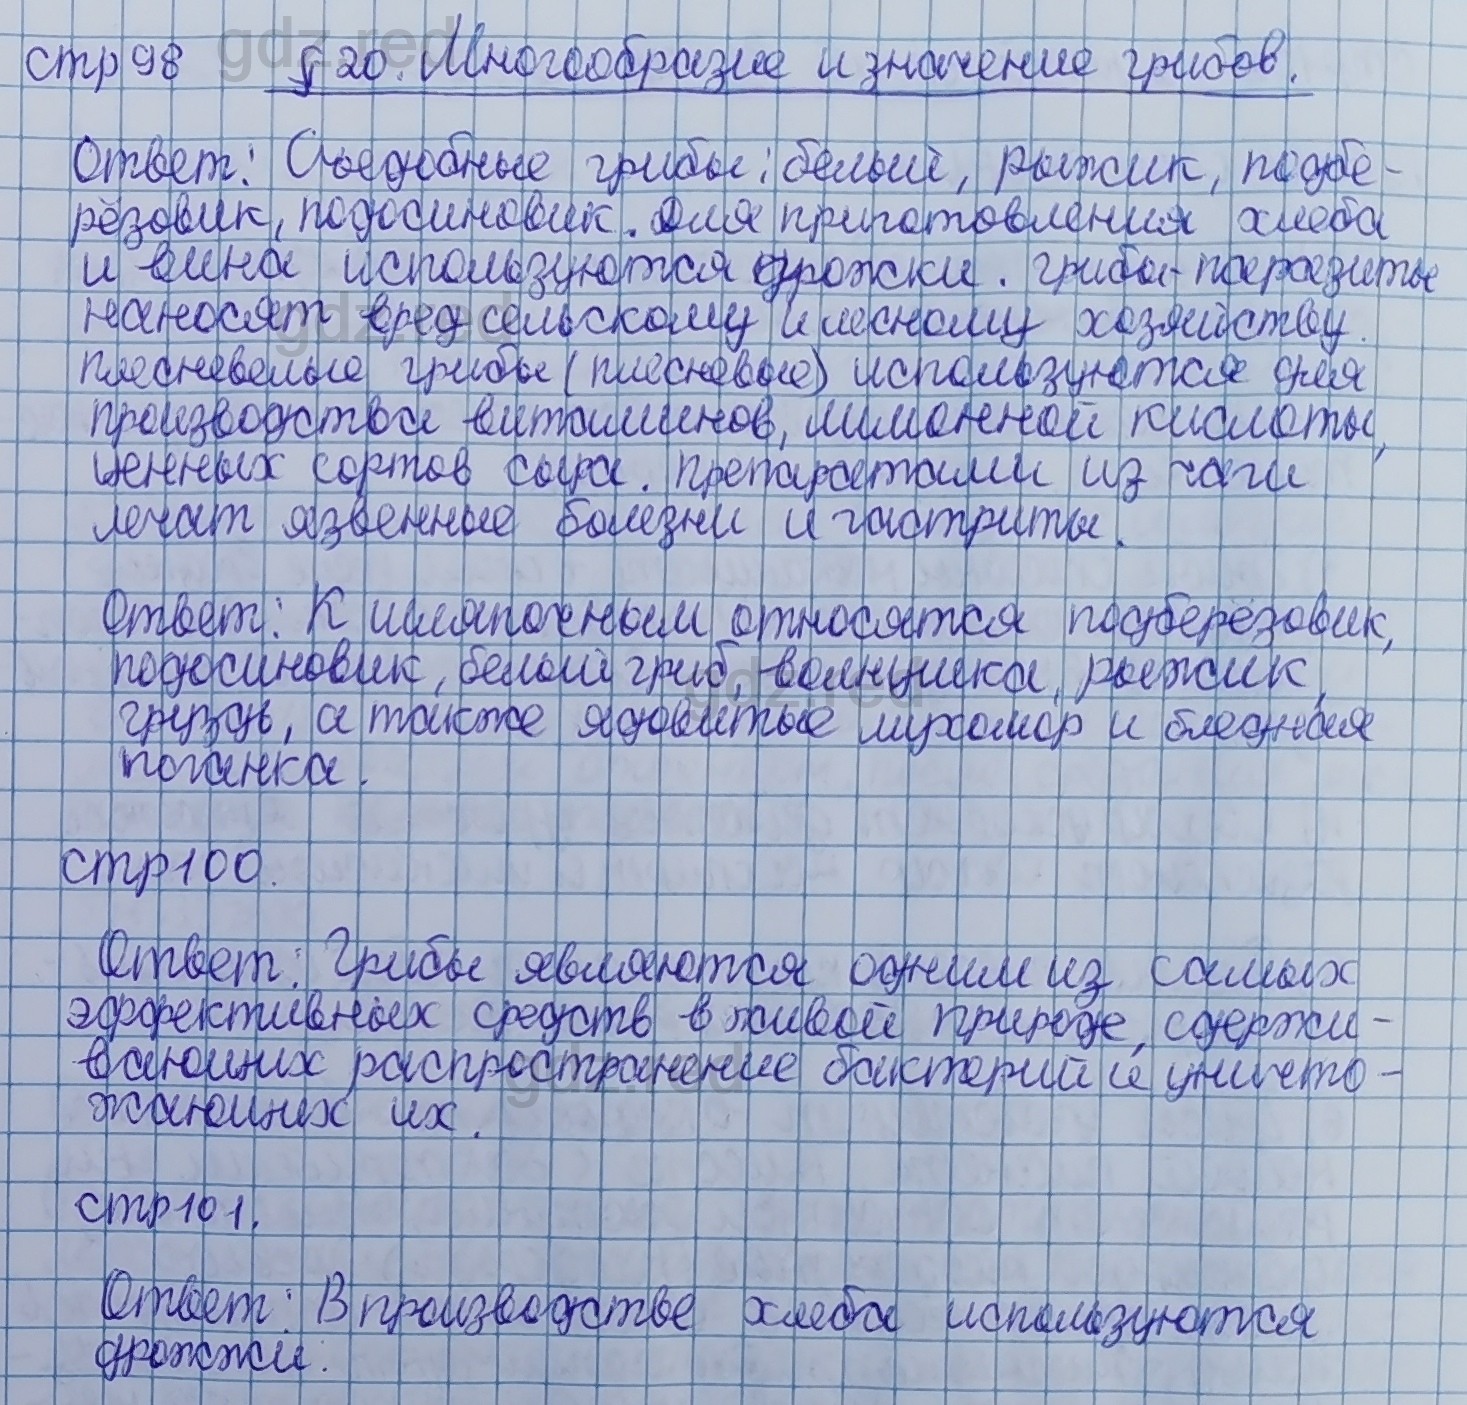 стр 98 § 20. Многообразие и значение грибов.
Ответ: Съедобные грибы: белый, рыжик, подбе-
рёзовик, подосиновик. Для приготовления хлеба
и вина используются дрожжи. грибы-паразиты
наносят вред сельскому и лесному хозяйству.
плесневелые грибы (плесневые) используются для
производства витаминов, лимонной кислоты,
ценных сортов сыра. препаратами из чаги
лечат язвенные болезни и гастриты.
Ответ: К шляпочным относятся подберёзовик,
подосиновик, белый гриб, волнушка, рыжик,
груздь, а также ядовитые мухомор и бледная
поганка.
стр 100.
Ответ: Грибы являются одним из самых
эффективных средств в живой природе, сдержи-
вающих распространение бактерий и уничто-
жающих их.
стр 101.
Ответ: В производстве хлеба используются
дрожжи.
gdz.red
gdz.red
gdz.red
gdz.red